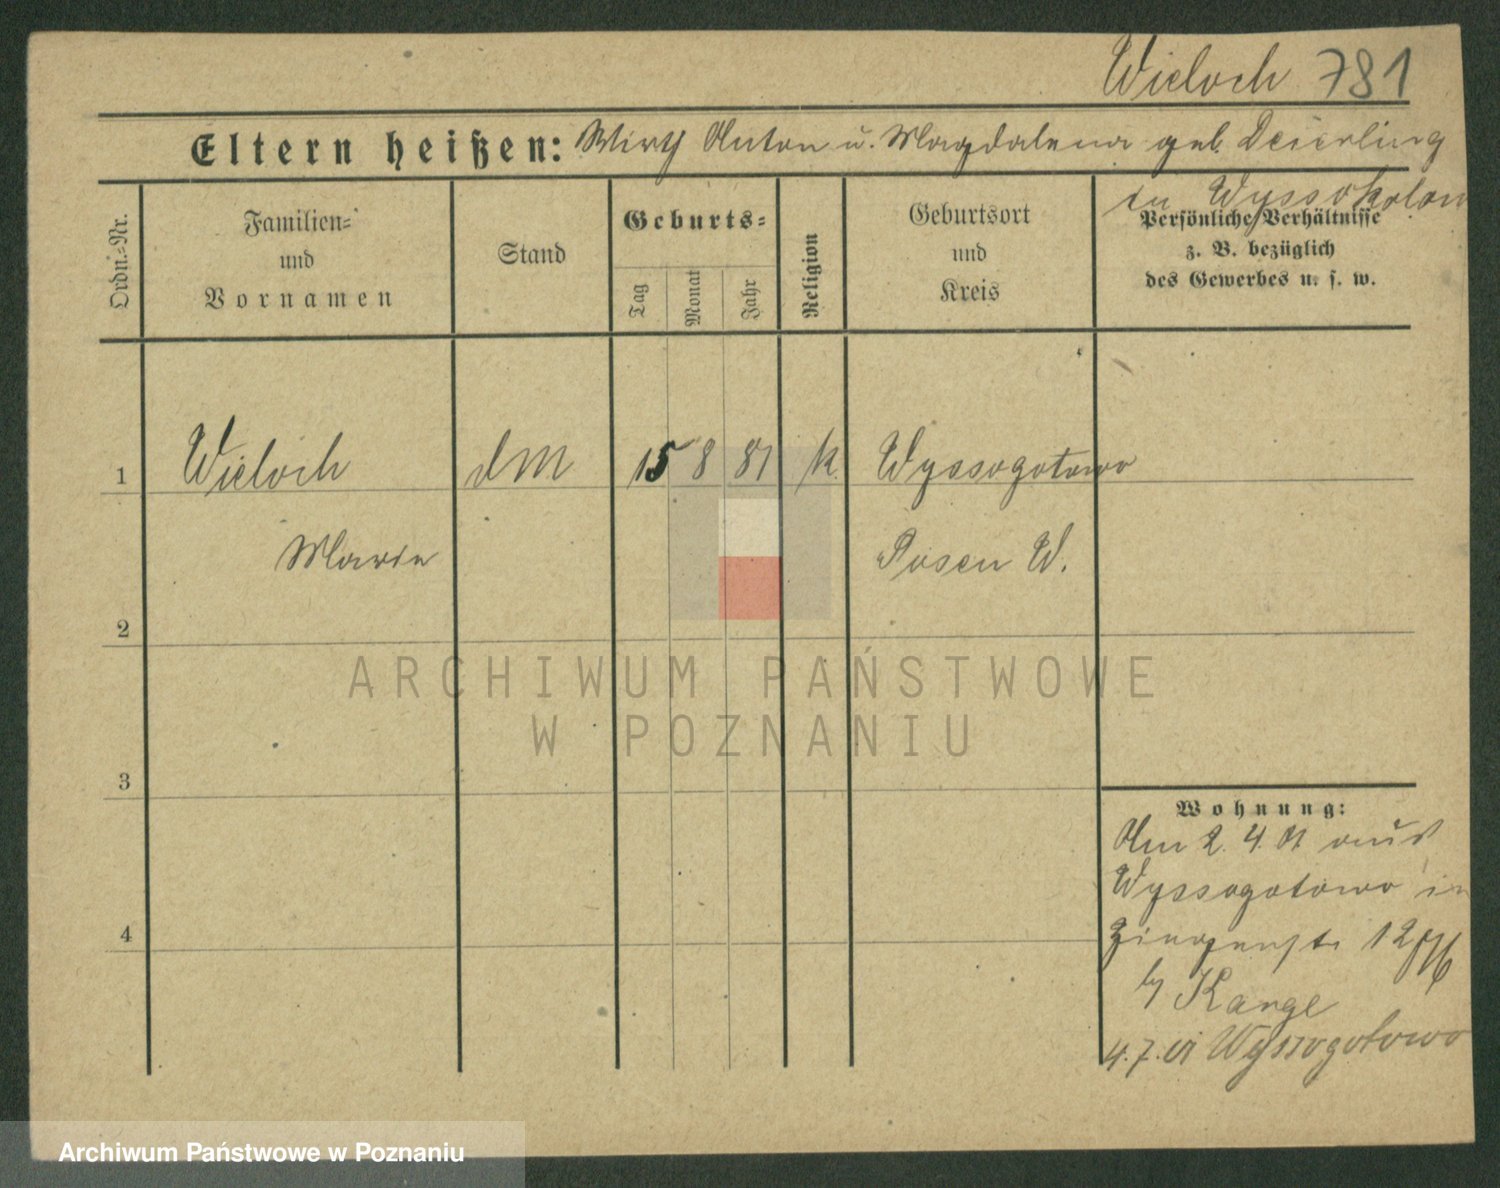 Wieloch 781
Eltern heißen: Wirth Anton u. Magdalena geb. Deierling
in Wyssokolan
Ordn.-Nr.
Familien-
und
Vornamen
Stand
Geburts-
Tag
Monat
Jahr
Religion
Geburtsort
und
Kreis
Persönliche Verhältnisse
z. B. bezüglich
des Gewerbes u. s. w.
1 Wieloch dM 15 8 81 k. Wyssogotowo
Marie Posen W.
2
3
4
Wohnung:
Am 2. 4. 01 aus
Wyssogotowo in
12
by Kange
4. 7. 01 Wyssogotowo
ARCHIWUM PAŃSTWOWE
W POZNANIU
Archiwum Państwowe w Poznaniu